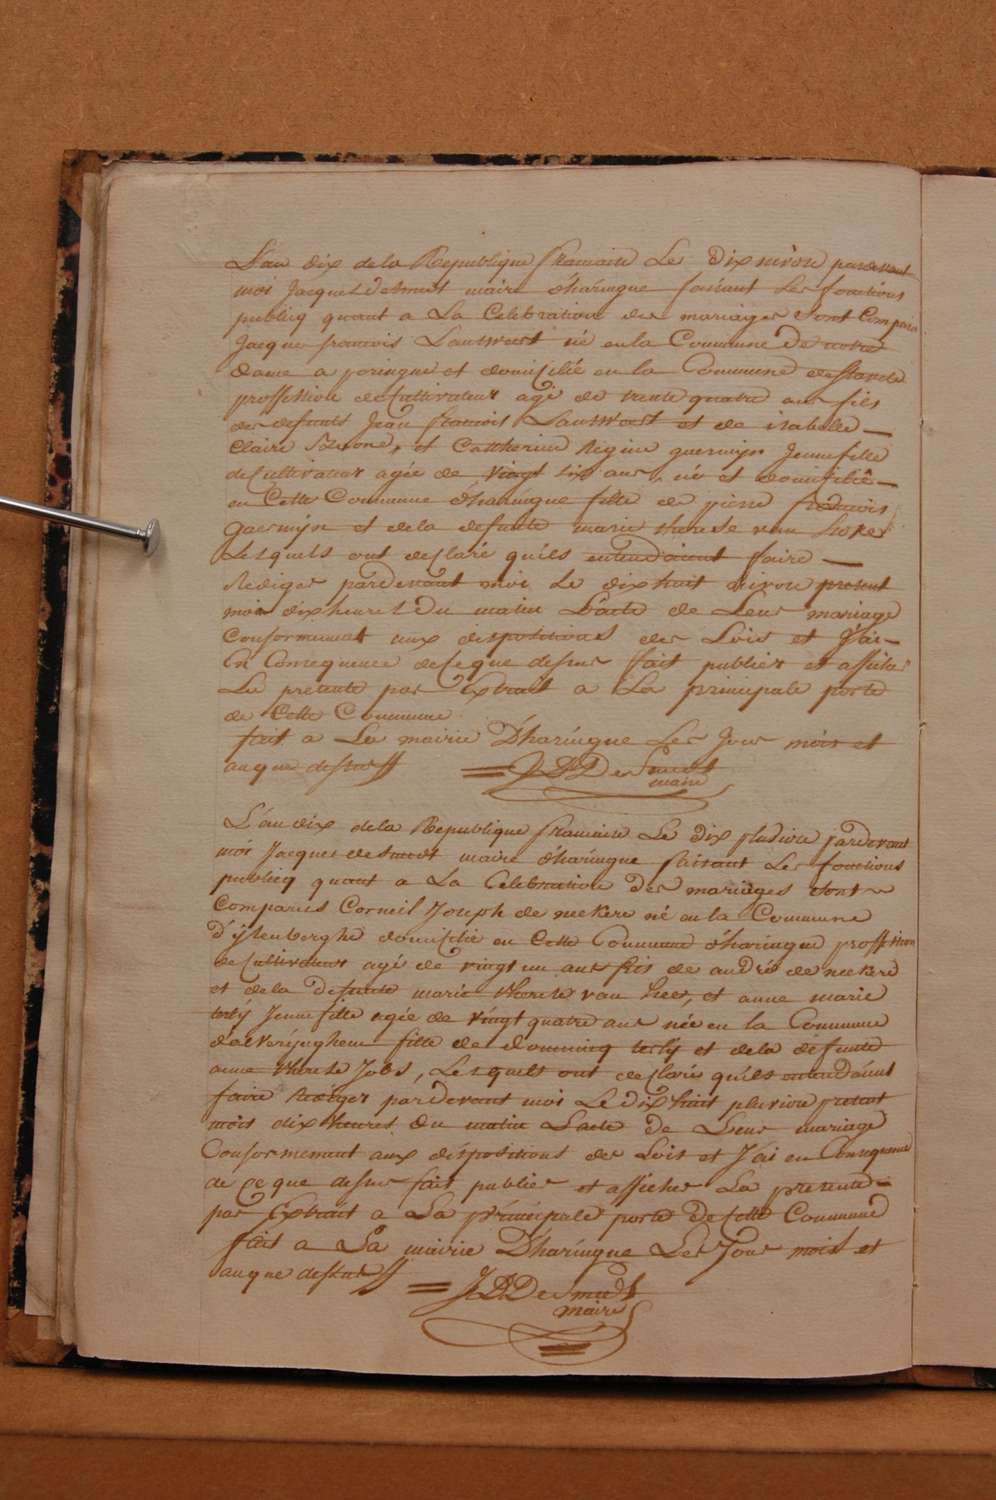 L'an dix de la Republique francaise Le dix nivose pardevant
moi Jacques desmedt maire d'haringue faisant Les fonctions
publicq quant a La Celebration des mariages sont Comparis
Jacque francois Lauwaert né en la Commune De notre
dame a poringue et domicilié en la Commune de stavele
proffession de Cultivateur agé de trente quatre ans fils
des defunts Jean francois Lauwaert et de isabelle
Claire et Catherine Regine guermijn Jeune fille
de Cultivateur agée de vingt six ans, né et domicilié
en Cette Commune d'haringue fille de pierre francois
Guermijn et de la defunte marie therese van
Lesquels ont declaré qu'ils entendaient faire
Rediger pardevant moi Le dixhuit nivose present
mois dix heures Du matin L'acte de Leur mariage
Conformement aux dispositions des Lois et J'ai
En Consequence de Ce que dessus fait publier et afficher
La presente par Extrait a La principale porte
de Cette Commune
fait a La mairie D'haringue Les Jour mois et
an que dessus
J D De Smedt
maire
L'an dix de la Republique francaise Le dix pluviose pardevant
moi Jacques desmedt maire d'haringue faisant Les fonctions
publicq quant a La Celebration Des mariages sont
Comparus Corneil Joseph de meckere né en la Commune
D'ijsenberghe domicilié en Cette Commune d'haringue proffession
de Cultivateur agé de vingt un ans fils de andré de meckere
et de la Defunte marie therese van hee, et anne marie
terlij Jeune fille agée de vingt quatre ans née en la Commune
d'alverijnghem fille de dominicq terlij et de la defunte
anne therese Jobs, Lesquels ont declaré qu'ils entendaient
faire Rediger pardevant moi Le dix huit pluviose present
mois dix heures Du matin L'acte De Leur mariage
Conformement aux dispositions des Lois et J'ai en Consequence
de Ce que dessus fait publier et afficher La presente
par Extrait a La principale porte de Cette Commune
fait a La mairie D'haringue Les Jour mois et
an que dessus
J D De Smedt
maire